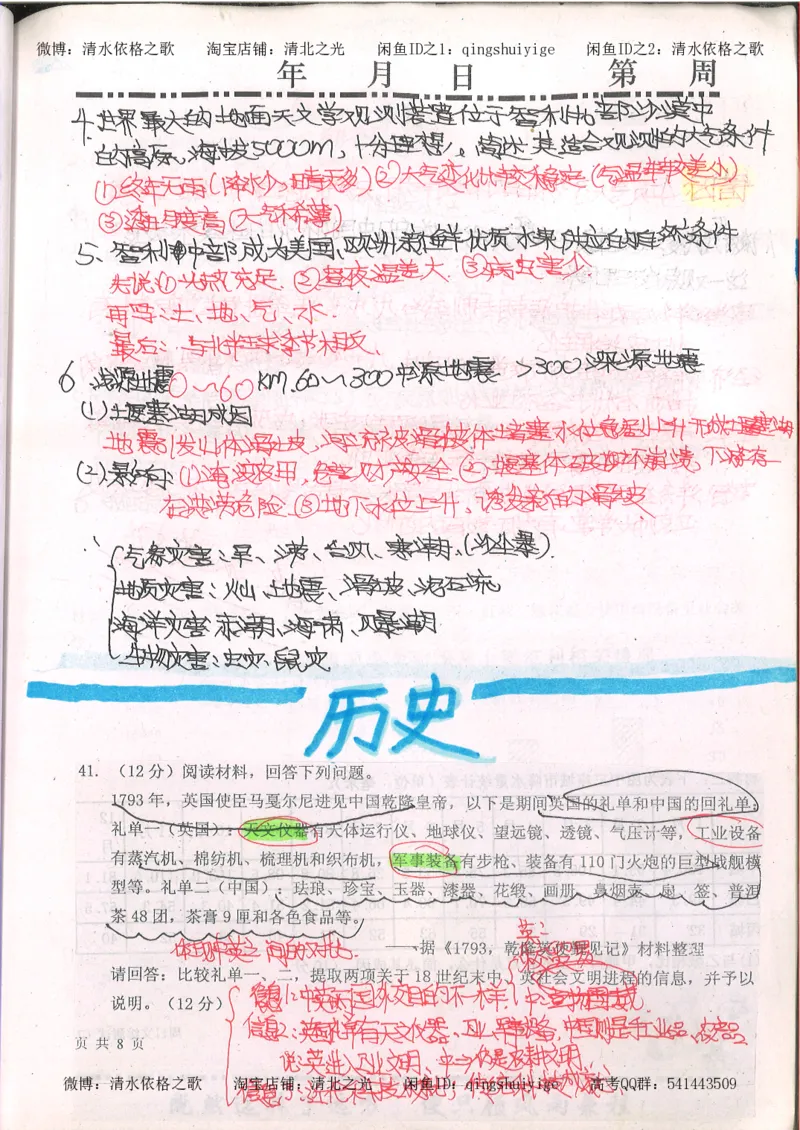 微博：清水依格之歌 淘宝店铺：清北之光 闲鱼ID之1：qingshuiyige 闲鱼ID之2：清水依格之歌
年 月 日 第 周
4.世界最大的地面天文学观测装置位于智利北部阿沙漠中
的高原，海拔5000m，十分理想，简述其适合观测的大气条件
①终年无雨(降水少,晴天多)②大气变化比较稳定(气温年较差小)
③透明度高(大气稀薄)
5、智利中部成为美国、欧洲新鲜优质水果供应的自然条件
先说①光热充足.②昼夜温差大.③病虫害少
再写:土、地、气、水.
最后:与北半球季节相反.
6 浅源地震0～60km.60～300中源地震 >300深源地震
(1)堰塞湖成因
地震引发山体滑坡,滑坡体堵塞水位急剧上升形成堰塞湖
(2).影响:①淹没农田,危害财产安全.②堰塞体破坏崩溃,下游存
在洪涝危险.③地下水位上升,诱发新的滑坡
气象灾害:旱、涝、台风、寒潮,(沙尘暴).
地质灾害:火山、地震、滑坡、泥石流
海洋灾害:赤潮、海啸、风暴潮
生物灾害:虫灾、鼠灾
历史
41. （12分）阅读材料，回答下列问题。
1793年，英国使臣马戛尔尼进见中国乾隆皇帝，以下是期间英国的礼单和中国的回礼单：
礼单一（英国）：天文仪器有天体运行仪、地球仪、望远镜、透镜、气压计等，工业设备
有蒸汽机、棉纺机、梳理机和织布机，军事装备有步枪、装备有110门火炮的巨型战舰模
型等。礼单二（中国）：珐琅、珍宝、玉器、漆器、花缎、画册、鼻烟壶、扇、签、普洱
茶48团，茶膏9匣和各色食品等。
——据《1793，乾隆英使觐见记》材料整理
请回答：比较礼单一、二，提取两项关于18世纪末中、英社会文明进程的信息，并予以
说明。（12分）
信息1:中英两国外交目的不一样,
信息2:英国礼单有天文仪器、工业、军事设备,中国则是手工业品、农产品
说:英进入工业文明,中仍是农耕文明.
页 共 8 页
微博：清水依格之歌 淘宝店铺：清北之光 闲鱼ID：qingshuiyige 高考QQ群：541443509